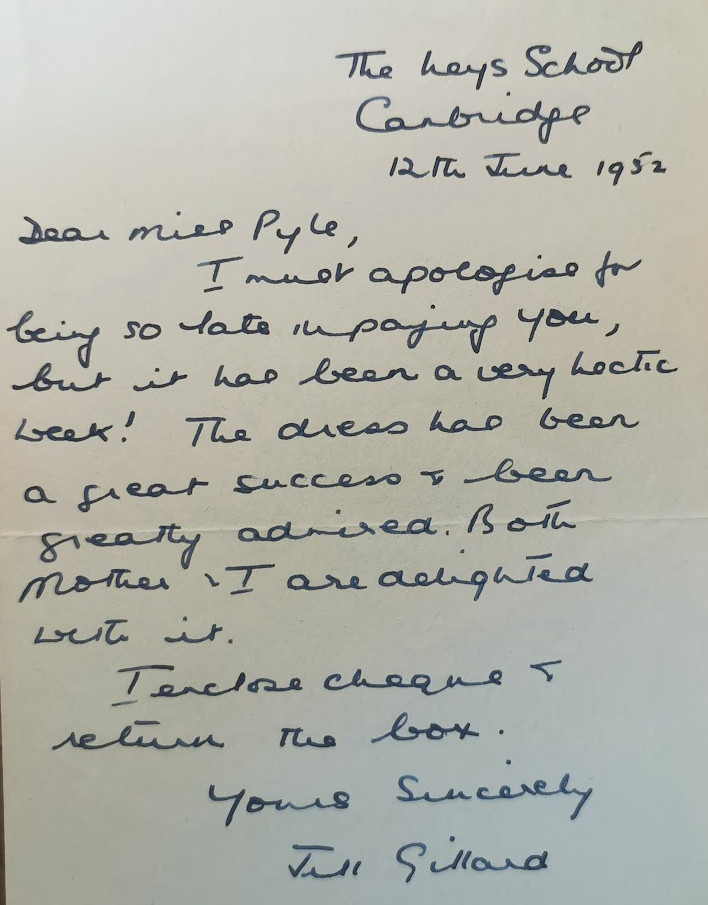 The Leys School
Cambridge
12th June 1952
Dear Miss Pyle,
I must apologise for
being so late in paying you,
but it has been a very hectic
week! The dress has been
a great success & been
greatly admired. Both
Mother & I are delighted
with it.
I enclose cheque &
return the box.
Yours Sincerely
Jill Gillard